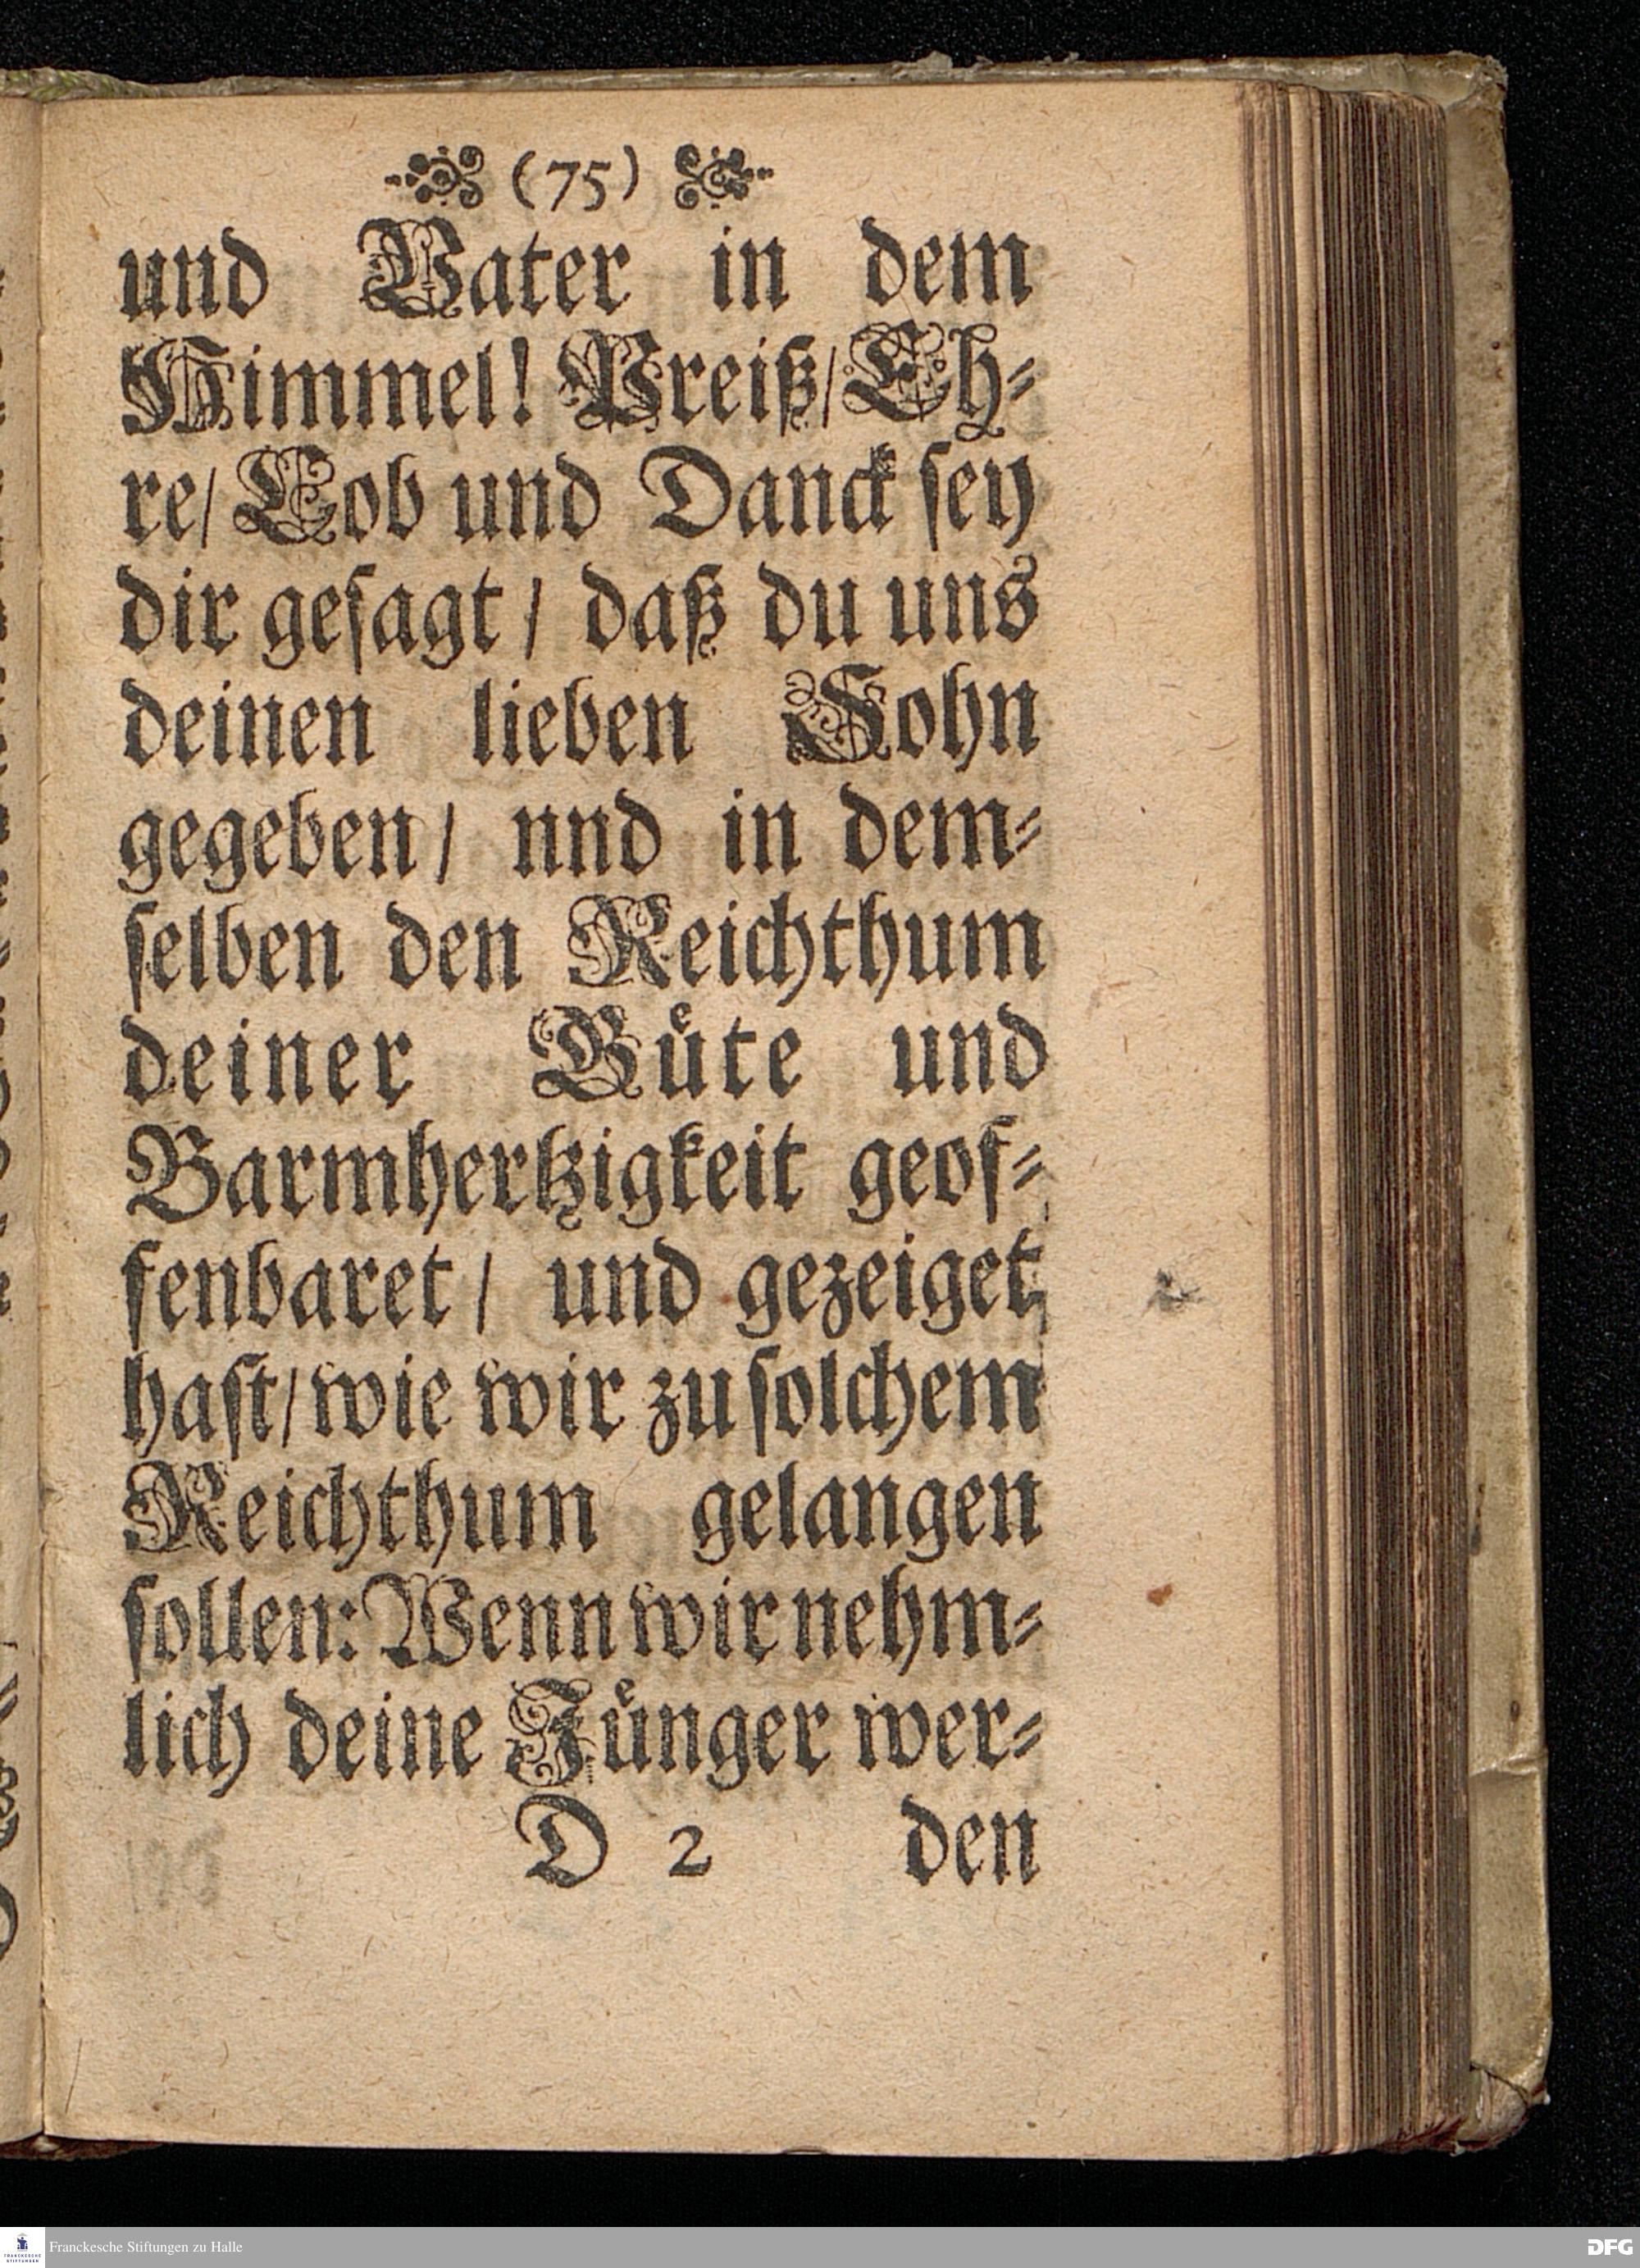 (75)
und Vater in dem
Himmel! Preiß/ Eh⸗
re/ Lob und Danck ſey
dir geſagt / daß du uns
deinen lieben Sohn
gegeben / nnd in dem⸗
ſelben den Reichthum
deiner Guͤte und
Barmhertzigkeit geof⸗
fenbaret / und gezeiget
haſt/ wie wir zu ſolchem
Reichthum gelangen
ſollen: Wenn wir nehm⸗
lich deine Juͤnger wer⸗
D 2 den
FRANCKESCHE STIFTUNGEN
Franckesche Stiftungen zu Halle
DFG